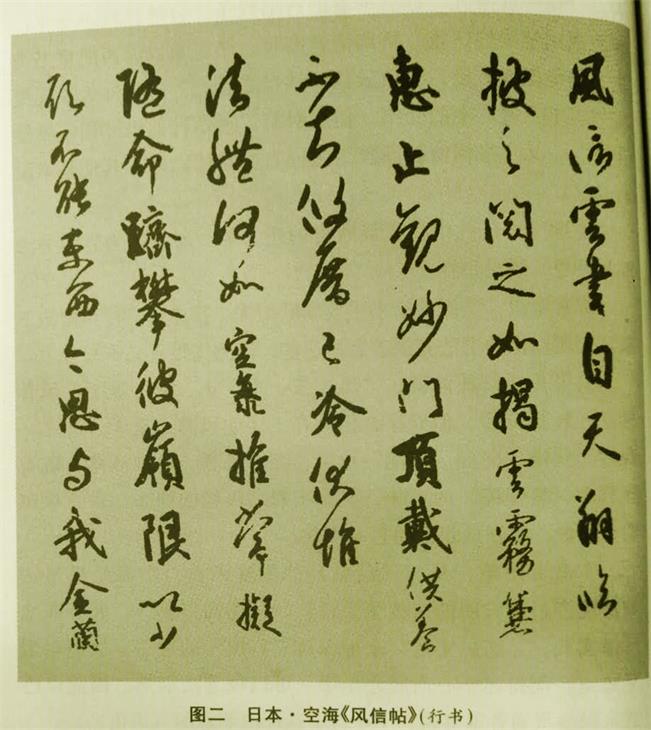 風信雲書自天翔臨
披之閱之如揭雲霧兼
惠止觀妙門頂戴供養
不知攸厝已冷伏惟
法體何如空海推常擬
隨命躋攀彼嶺限以少
願不能東西今思与我金蘭
图二 日本·空海《风信帖》(行书)